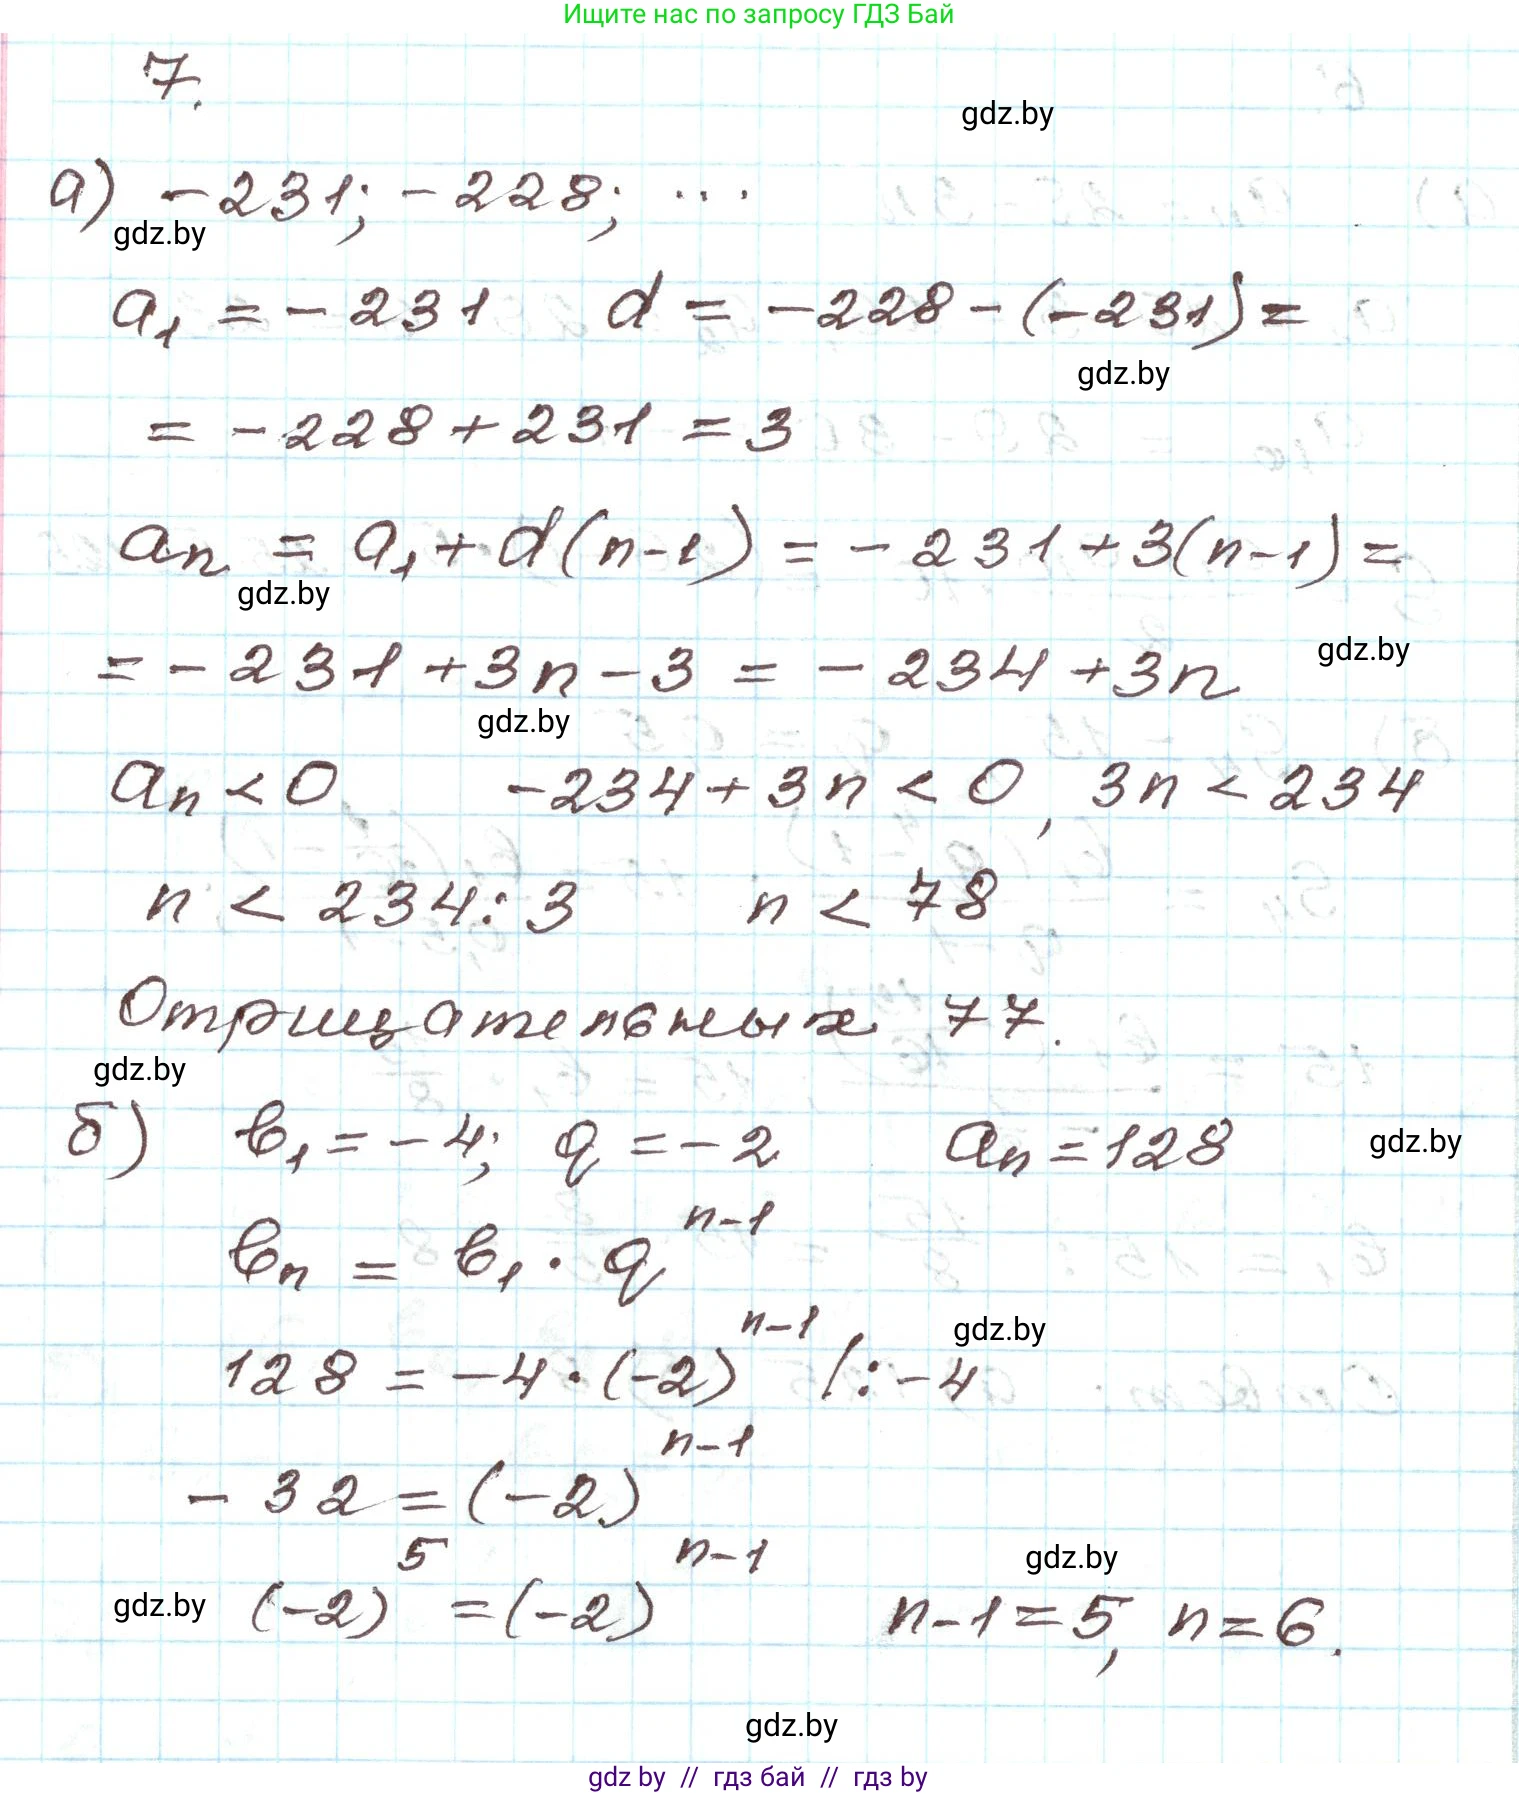 Ищите нас по запросу ГДЗ Бай
7.
gdz.by
а) -231; -228; ...
gdz.by
a₁ = -231 d = -228 - (-231) =
gdz.by
= -228 + 231 = 3
aₙ = a₁ + d(n-1) = -231 + 3(n-1) =
gdz.by
= -231 + 3n - 3 = -234 + 3n
gdz.by
gdz.by
aₙ < 0 -234 + 3n < 0, 3n < 234
n < 234 : 3 n < 78
Отрицательных 77.
gdz.by
б) b₁ = -4; q = -2 aₙ = 128
gdz.by
bₙ = b₁ · qⁿ⁻¹
128 = -4 · (-2)ⁿ⁻¹ /: -4
gdz.by
-32 = (-2)ⁿ⁻¹
(-2)⁵ = (-2)ⁿ⁻¹ n-1 = 5, n = 6.
gdz.by
gdz.by
gdz.by
gdz by // гдз бай // гдз by